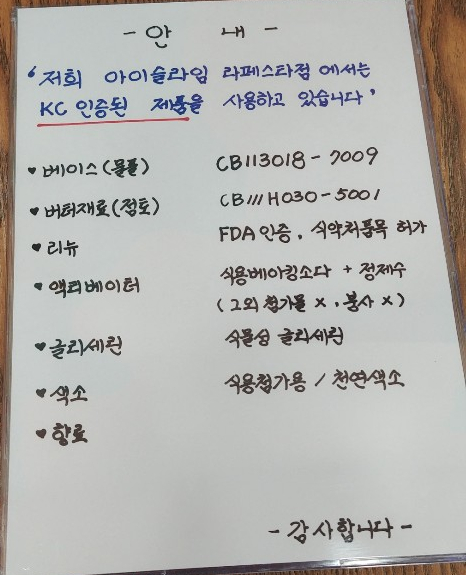 - 안 내 -
'저희 아이슬라임 라페스타점에서는
KC 인증된 제품을 사용하고 있습니다'
♥ 베이스(물풀) CB113018-7009
♥ 버터재료(점토) CB111H030-5001
♥ 리뉴 FDA인증, 식약처품목 허가
♥ 액티베이터 식용베이킹소다 + 정제수
(그외 첨가물 x, 붕사 x)
♥ 글리세린 식물성 글리세린
♥ 색소 식용첨가용 / 천연색소
♥ 향료
- 감사합니다 -